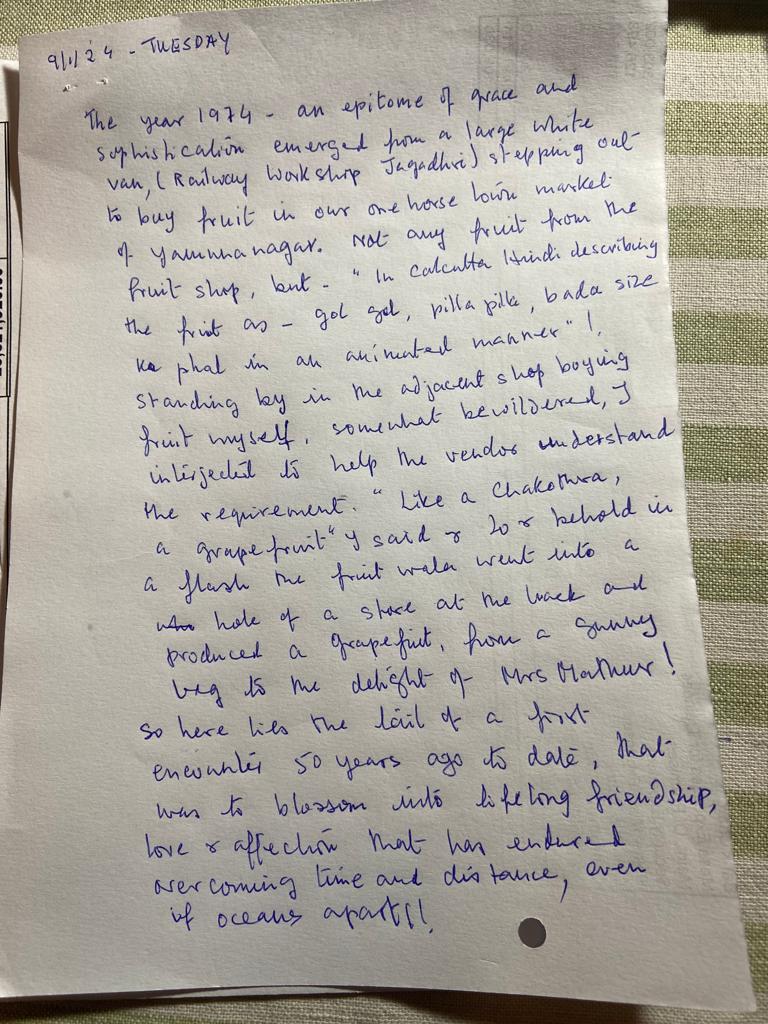 9/1/24 - TUESDAY
The year 1974 - an epitome of grace and
sophistication emerged from a large white
van, (Railway Workshop Jagadhri) stepping out
to buy fruit in our one horse town market
of Yamunanagar. Not any fruit from the
fruit shop, but - "In Calcutta Hindi describing
the fruit as - gol gol, pilla pilla, bada size
ka phal in an animated manner"!
Standing by in the adjacent shop buying
fruit myself, somewhat bewildered, I
interjected to help the vendor understand
the requirement. "Like a Chakothra,
a grapefruit" I said & lo & behold in
a flash the fruit wala went into a
hole of a store at the back and
produced a grapefruit, from a gunny
bag to the delight of Mrs Mathur!
So here lies the tail of a first
encounter 50 years ago to date, that
was to blossom into lifelong friendship,
love & affection that has endured
overcoming time and distance, even
if oceans apart!!